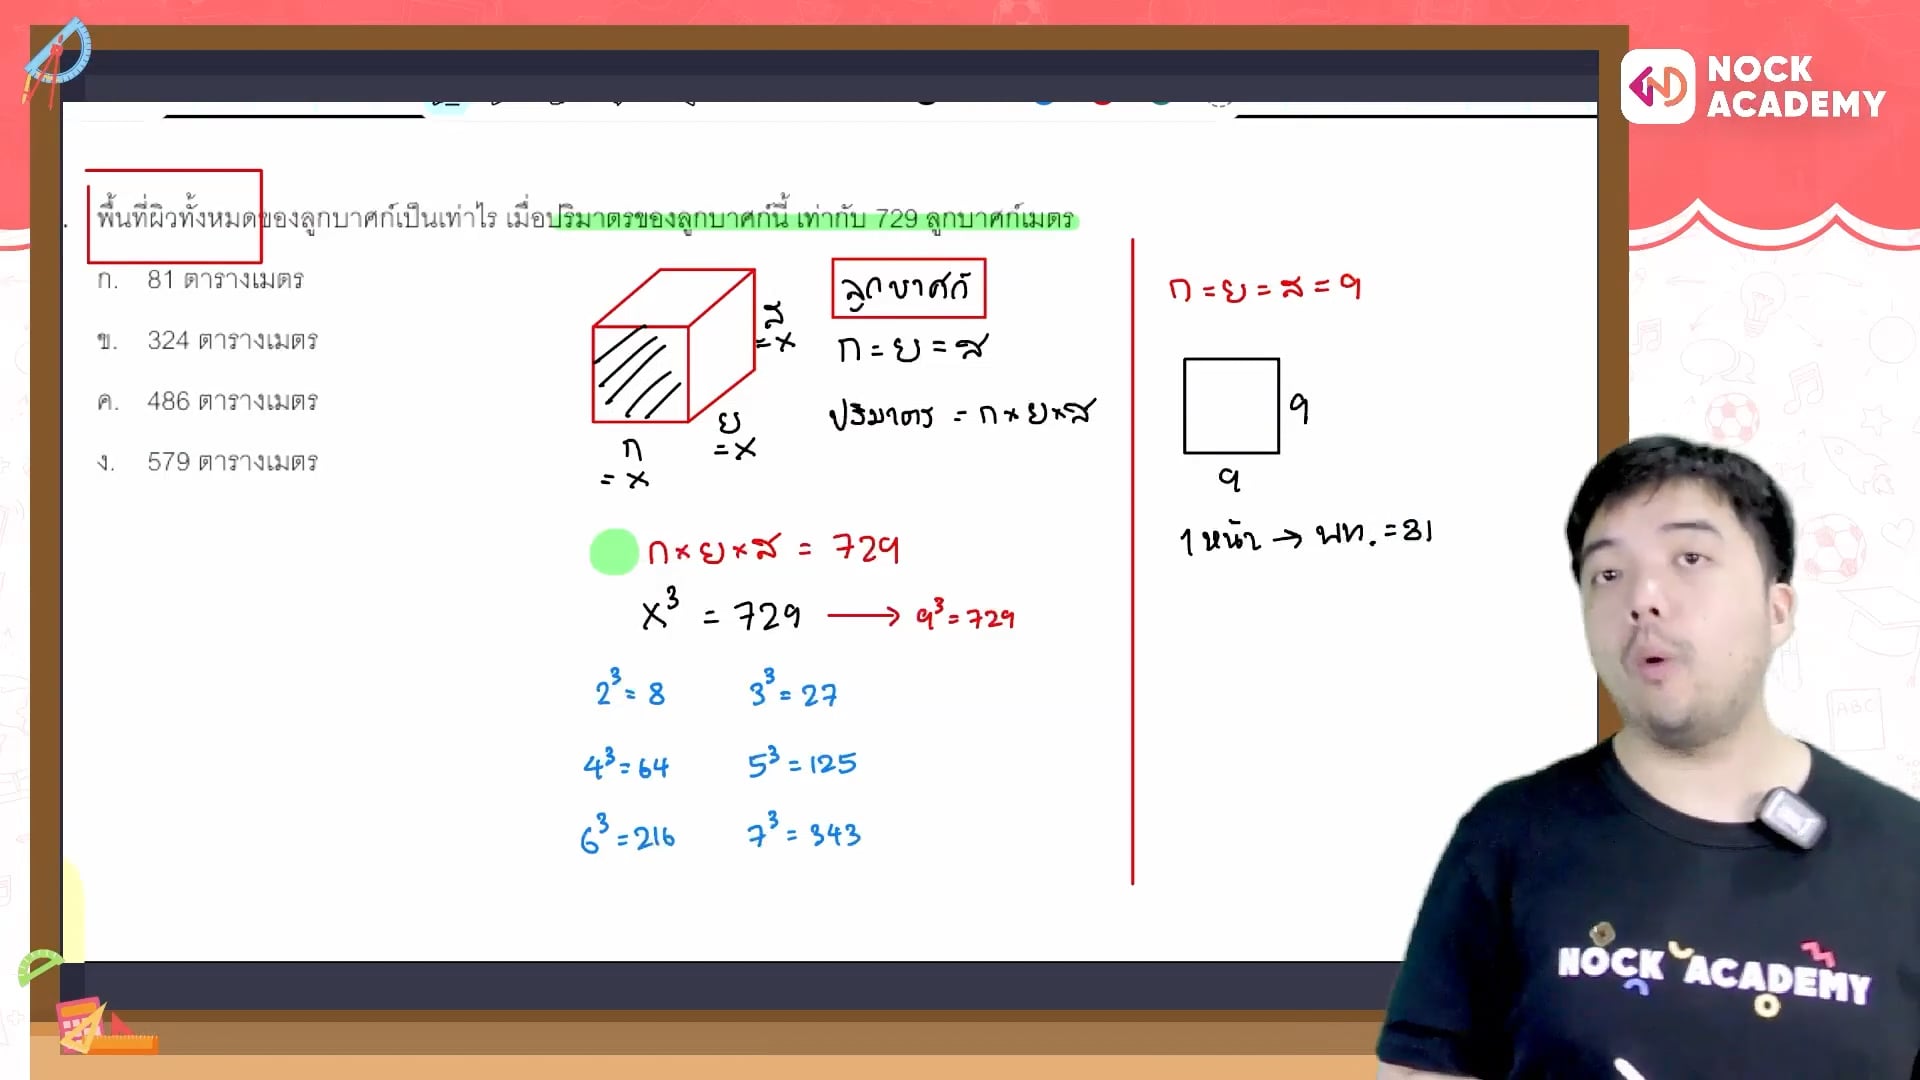 NOCK
ACADEMY
. พื้นที่ผิวทั้งหมดของลูกบาศก์เป็นเท่าไร เมื่อปริมาตรของลูกบาศก์นี้ เท่ากับ 729 ลูกบาศก์เมตร
ก. 81 ตารางเมตร
ข. 324 ตารางเมตร
ค. 486 ตารางเมตร
ง. 579 ตารางเมตร
ส
= x
ย
= x
ก
= x
ลูกบาศก์
ก = ย = ส
ปริมาตร = ก × ย × ส
ก × ย × ส = 729
x³ = 729 → 9³ = 729
2³ = 8 3³ = 27
4³ = 64 5³ = 125
6³ = 216 7³ = 343
ก = ย = ส = 9
9
9
1 หน้า → พท. = 81
NOCK ACADEMY
ABC